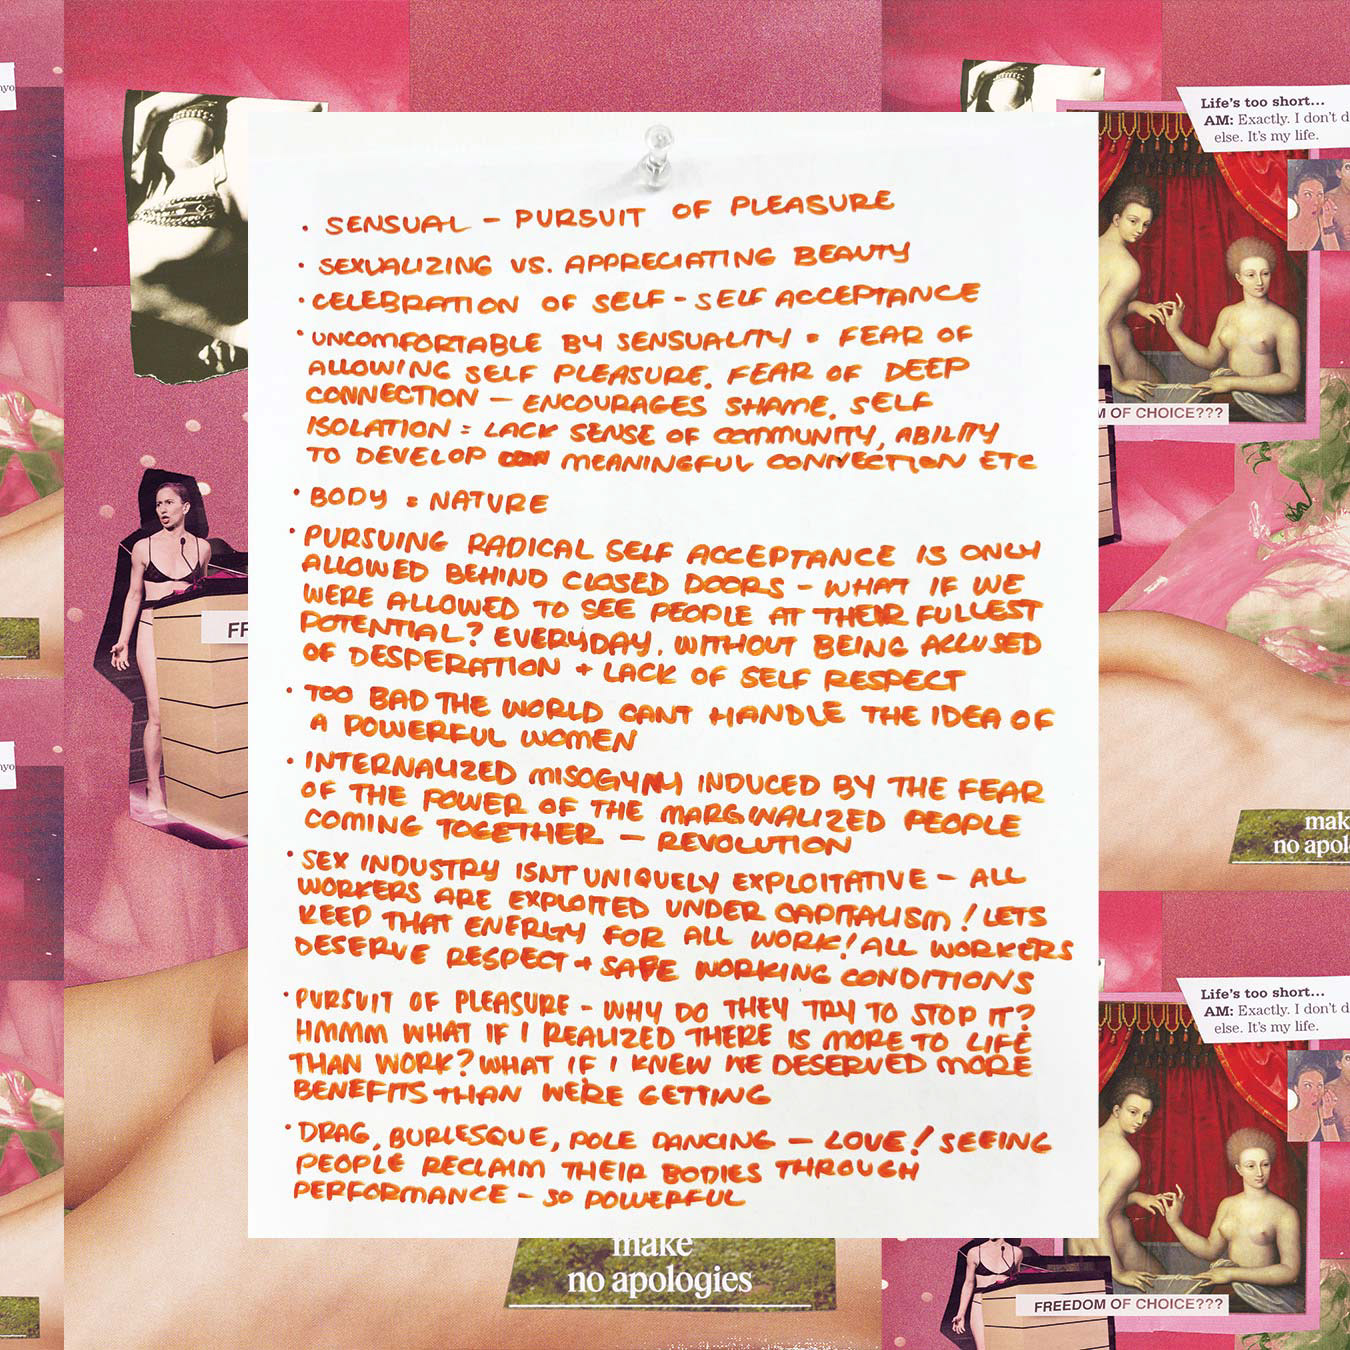 nyo
Life's too short...
AM: Exactly. I don't d
else. It's my life.
• SENSUAL – PURSUIT OF PLEASURE
• SEXUALIZING VS. APPRECIATING BEAUTY
• CELEBRATION OF SELF - SELF ACCEPTANCE
• UNCOMFORTABLE BY SENSUALITY = FEAR OF
ALLOWING SELF PLEASURE. FEAR OF DEEP
CONNECTION – ENCOURAGES SHAME. SELF
ISOLATION = LACK SENSE OF COMMUNITY, ABILITY
TO DEVELOP MEANINGFUL CONNECTION ETC
M OF CHOICE???
• BODY = NATURE
• PURSUING RADICAL SELF ACCEPTANCE IS ONLY
ALLOWED BEHIND CLOSED DOORS – WHAT IF WE
WERE ALLOWED TO SEE PEOPLE AT THEIR FULLEST
POTENTIAL? EVERYDAY. WITHOUT BEING ACCUSED
OF DESPERATION + LACK OF SELF RESPECT
FR
• TOO BAD THE WORLD CANT HANDLE THE IDEA OF
A POWERFUL WOMEN
• INTERNALIZED MISOGYNY INDUCED BY THE FEAR
OF THE POWER OF THE MARGINALIZED PEOPLE
COMING TOGETHER – REVOLUTION
nyo
mak
no apolo
• SEX INDUSTRY ISNT UNIQUELY EXPLOITATIVE – ALL
WORKERS ARE EXPLOITED UNDER CAPITALISM! LETS
KEEP THAT ENERGY FOR ALL WORK! ALL WORKERS
DESERVE RESPECT + SAFE WORKING CONDITIONS
• PURSUIT OF PLEASURE – WHY DO THEY TRY TO STOP IT?
HMMM WHAT IF I REALIZED THERE IS MORE TO LIFE
THAN WORK? WHAT IF I KNEW WE DESERVED MORE
BENEFITS THAN WE'RE GETTING
Life's too short...
AM: Exactly. I don't d
else. It's my life.
• DRAG, BURLESQUE, POLE DANCING – LOVE! SEEING
PEOPLE RECLAIM THEIR BODIES THROUGH
PERFORMANCE – SO POWERFUL
make
no apologies
FREEDOM OF CHOICE???